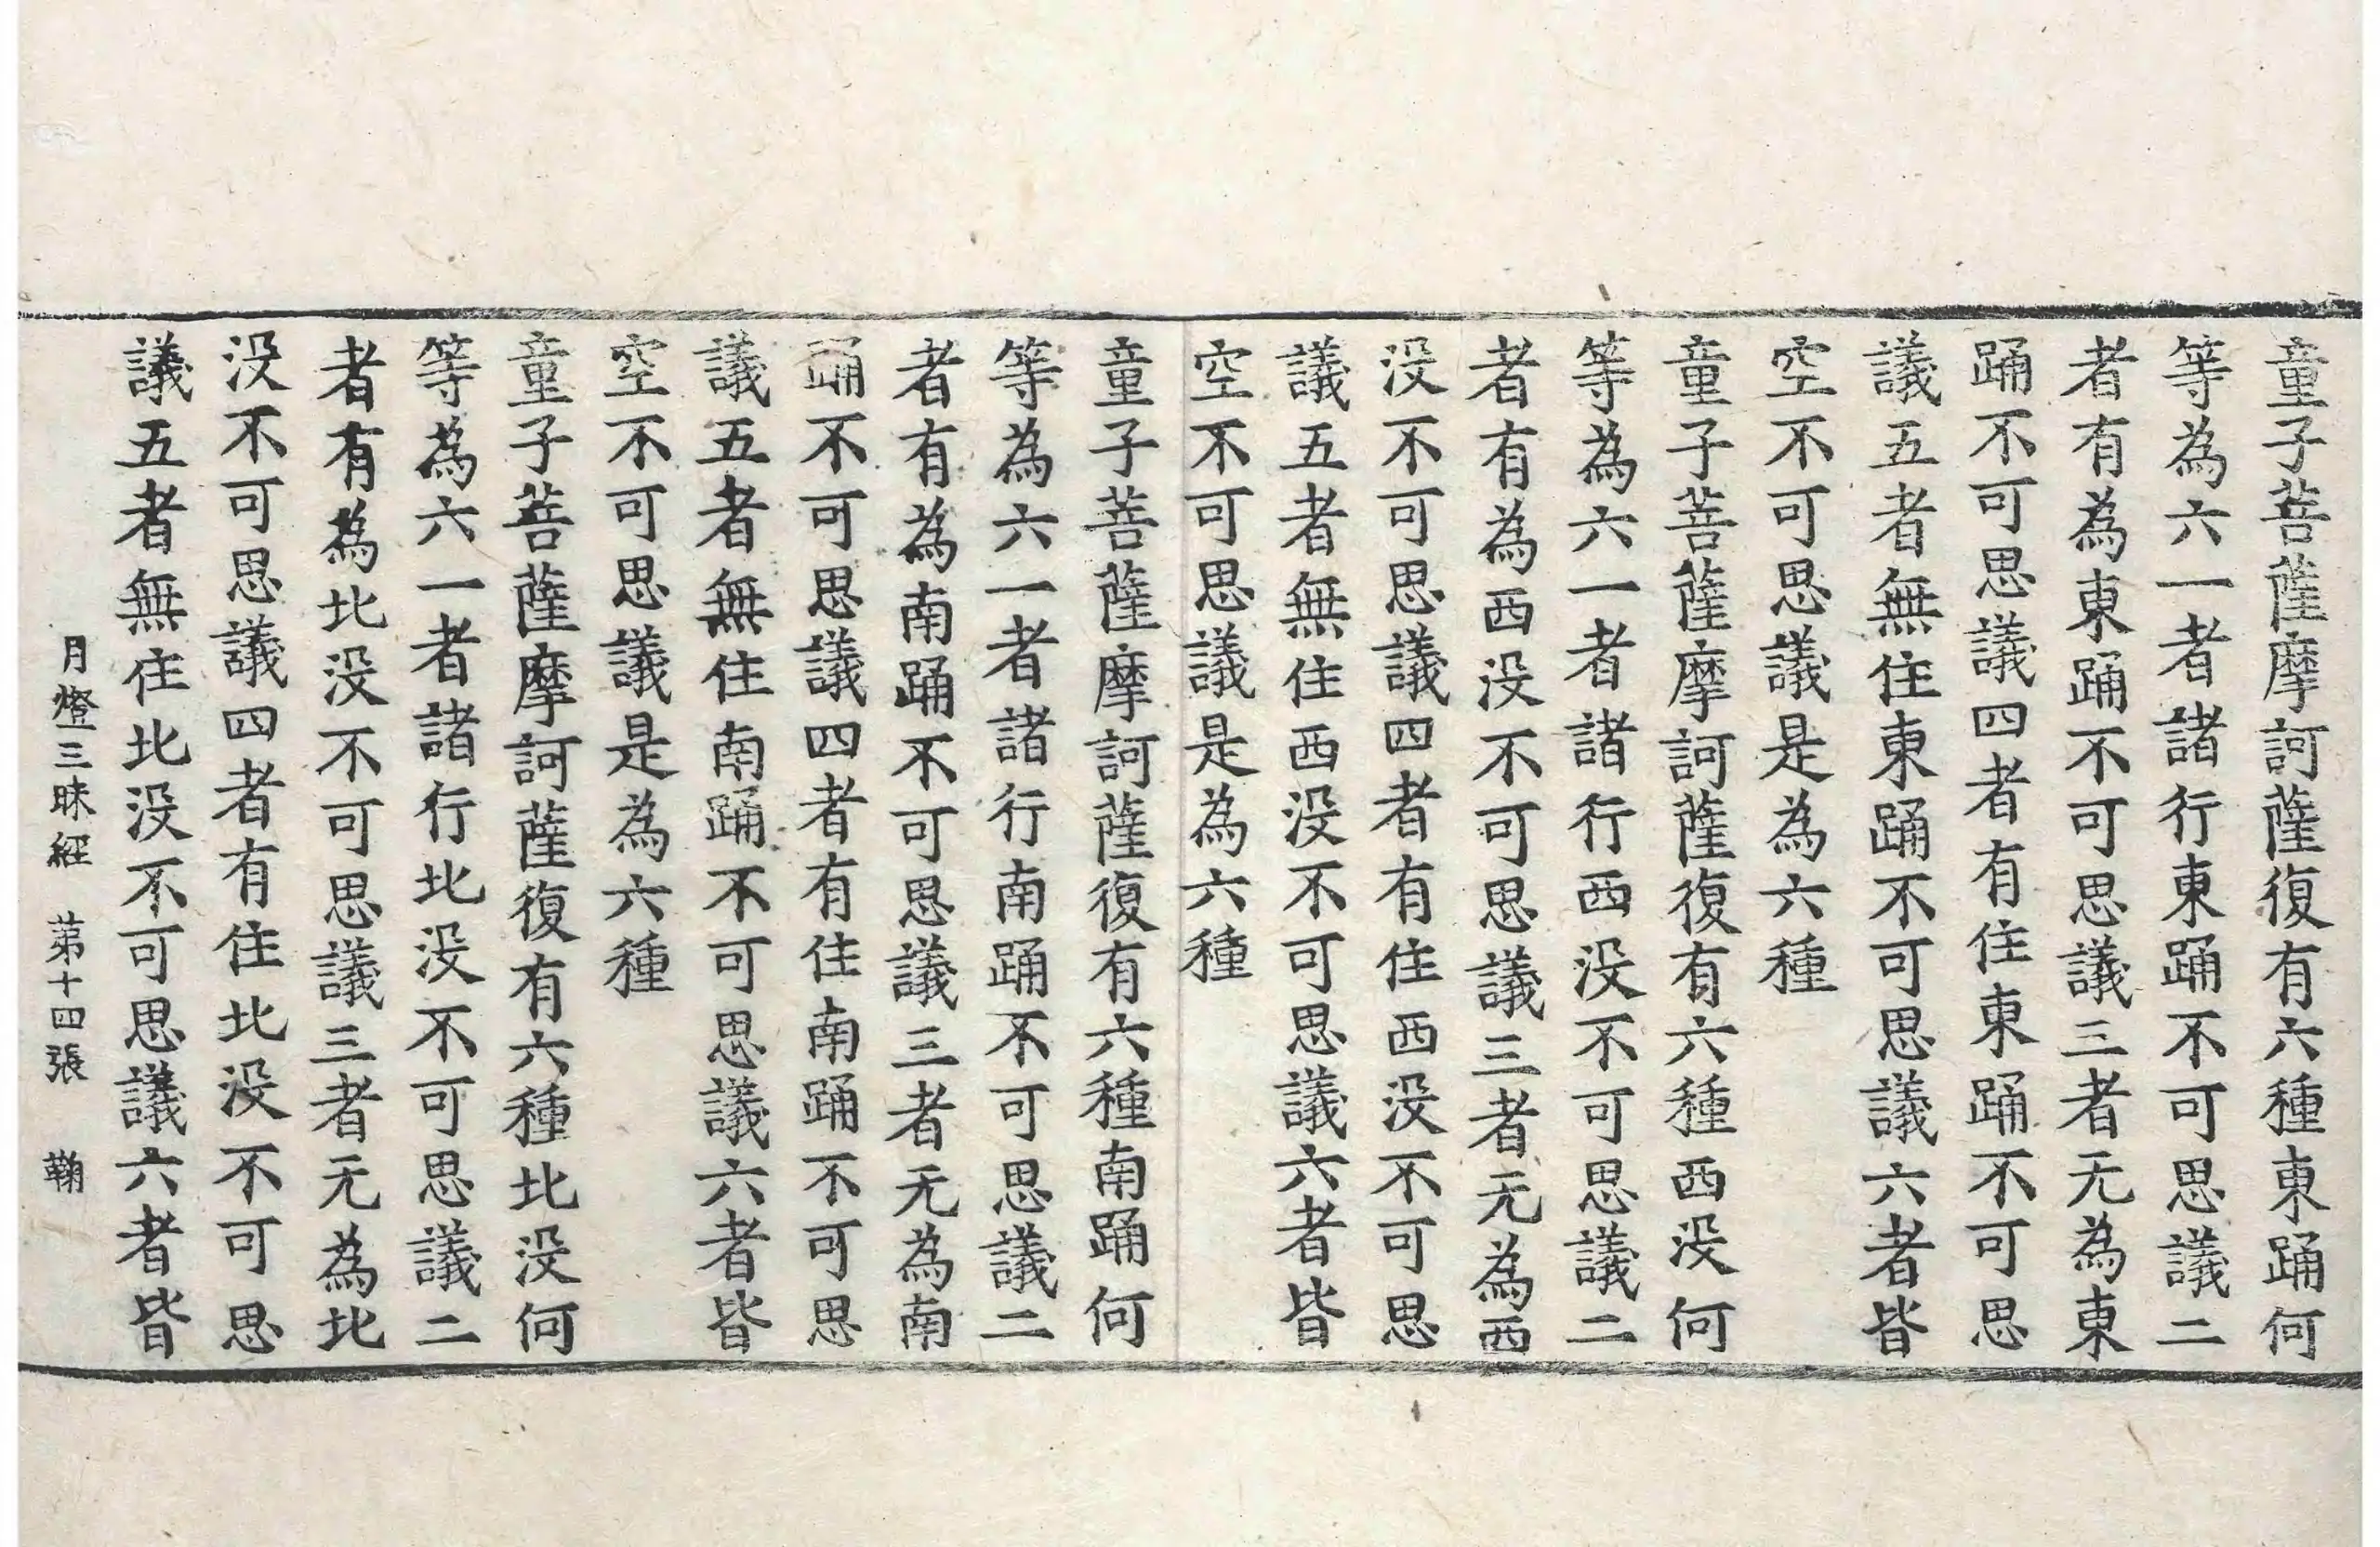 童子菩薩摩訶薩復有六種東踊何
等為六一者諸行東踊不可思議二
者有為東踊不可思議三者无為東
踊不可思議四者有住東踊不可思
議五者無住東踊不可思議六者皆
空不可思議是為六種
童子菩薩摩訶薩復有六種西没何
等為六一者諸行西没不可思議二
者有為西没不可思議三者无為西
没不可思議四者有住西没不可思
議五者無住西没不可思議六者皆
空不可思議是為六種
童子菩薩摩訶薩復有六種南踊何
等為六一者諸行南踊不可思議二
者有為南踊不可思議三者无為南
踊不可思議四者有住南踊不可思
議五者無住南踊不可思議六者皆
空不可思議是為六種
童子菩薩摩訶薩復有六種北没何
等為六一者諸行北没不可思議二
者有為北没不可思議三者无為北
没不可思議四者有住北没不可思
議五者無住北没不可思議六者皆
月燈三昧經 苐十四張 鞠